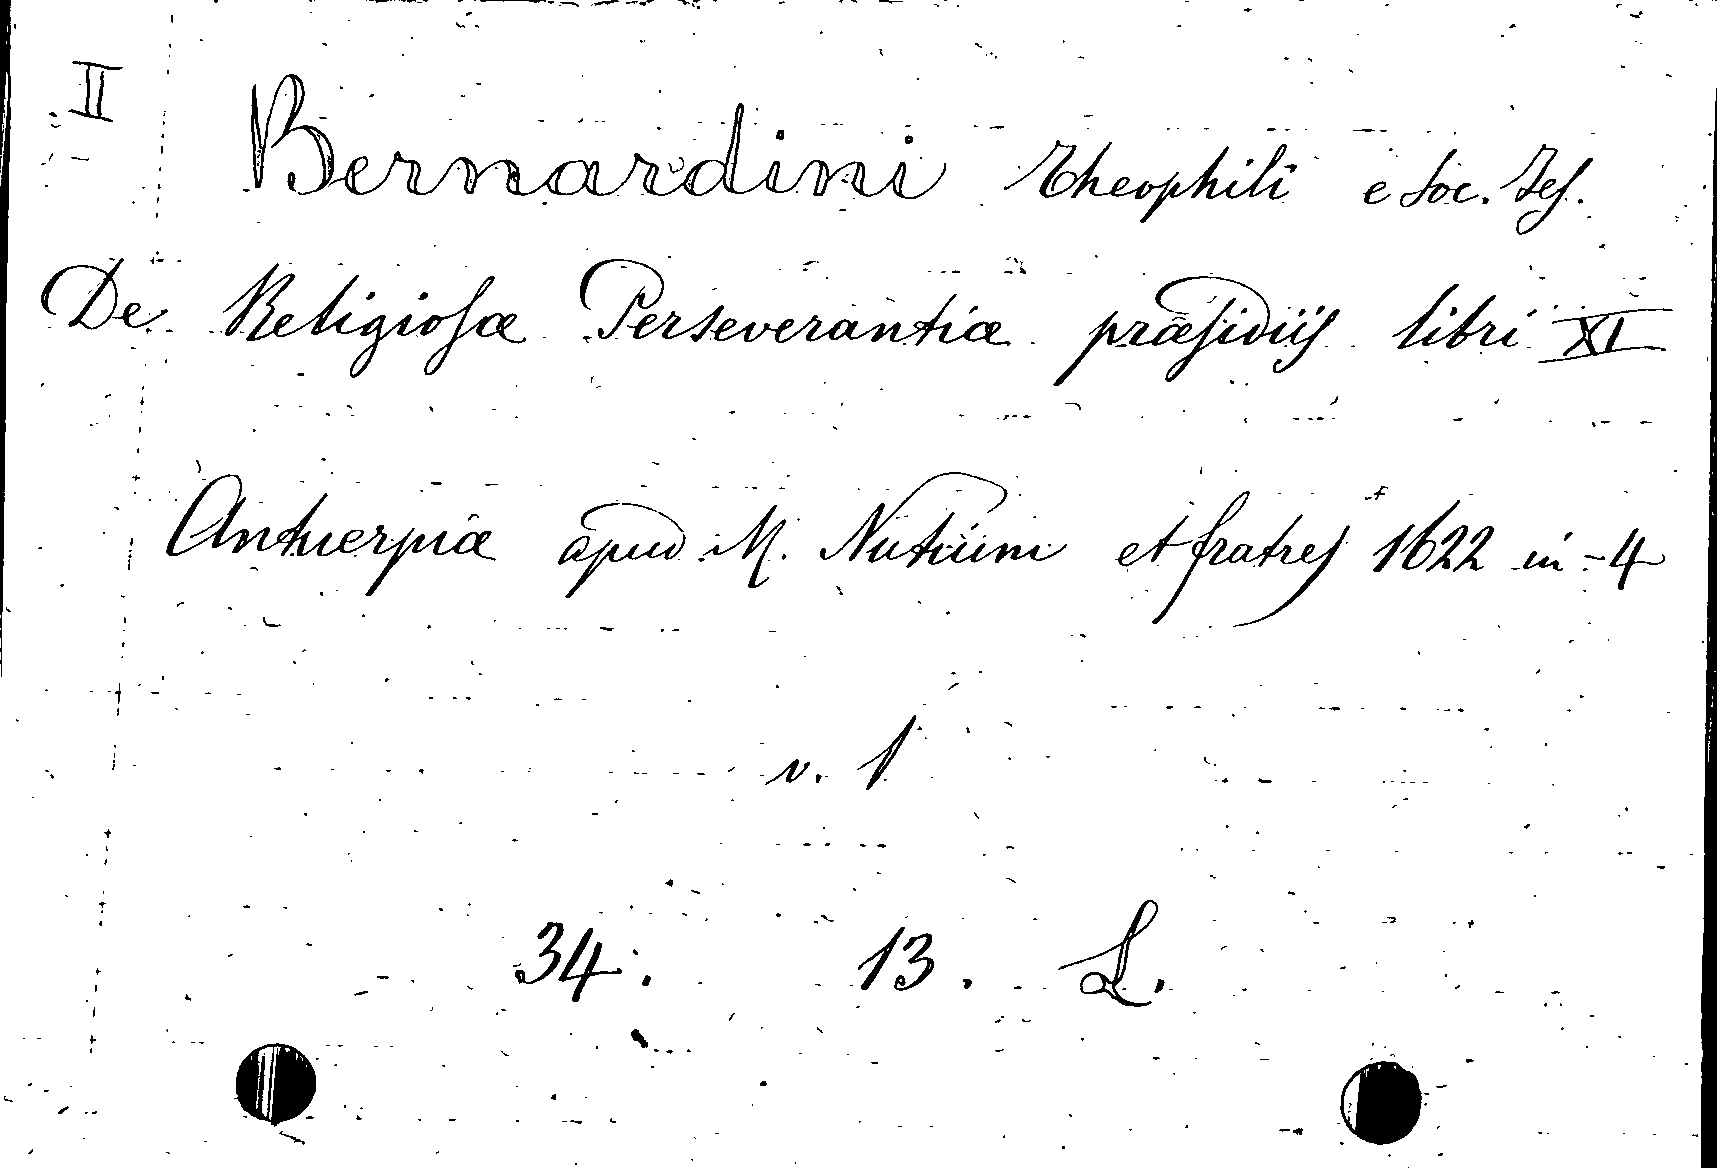 II
Bernardini Theophili e Soc. Jes.
De Religiosæ Perseverantiæ præsidiis libri XI
Antuerpiæ apud M. Nutium et fratres 1622 in-4
v. 1
34. 13. L.